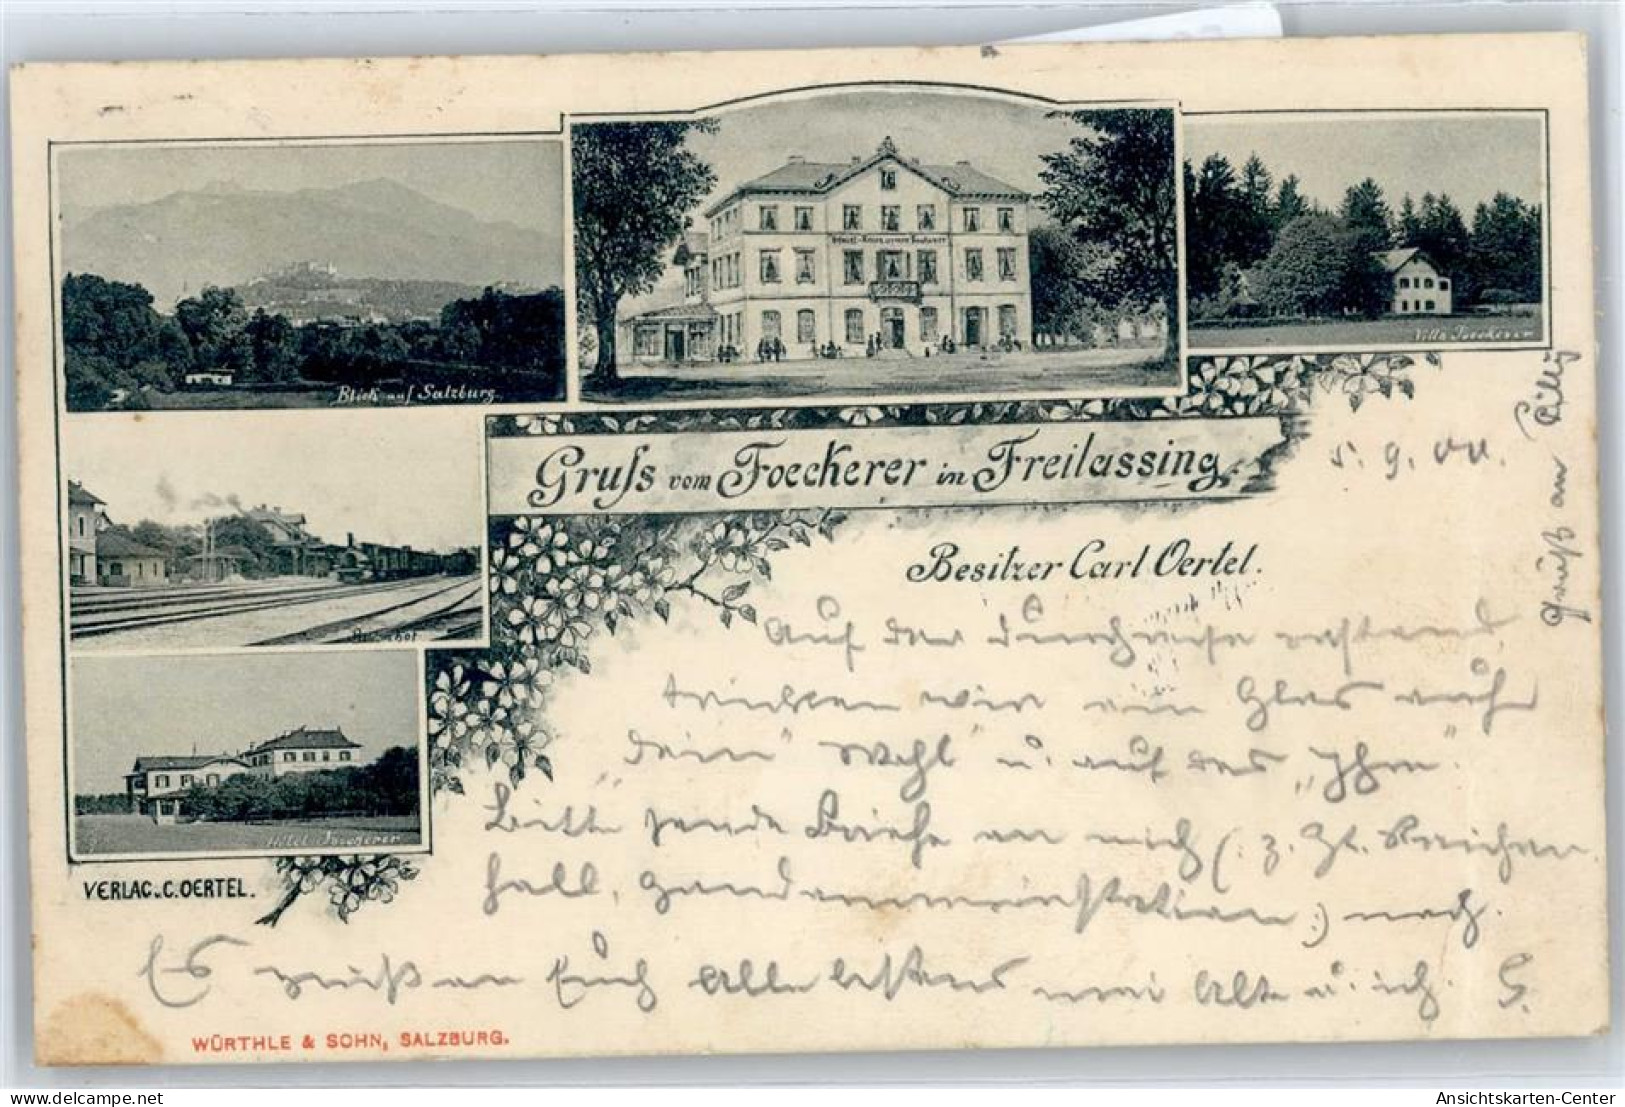 Blick auf Salzburg.
Hotel-Restaurant Foeckerer
Villa Foeckerer
Gruss vom Foeckerer in Freilassing.
5. 9. 00.
Besitzer Carl Oertel.
Bahnhof
Hôtel Foeckerer
VERLAG v. C. OERTEL.
Auf der Durchreise
trinken wir ein Glas auf
"Dein" Wohl u. auf das "Ihre".
Bitte sende Briefe an mich (: z. Zt. Reichen
hall, Gendarmeriestation :) nach.
Es grüßen Euch alle bestens mei Alte u. ich. G.
Gruß an
WÜRTHLE & SOHN, SALZBURG.
www.delcampe.net
mercier
Ansichtskarten-Center